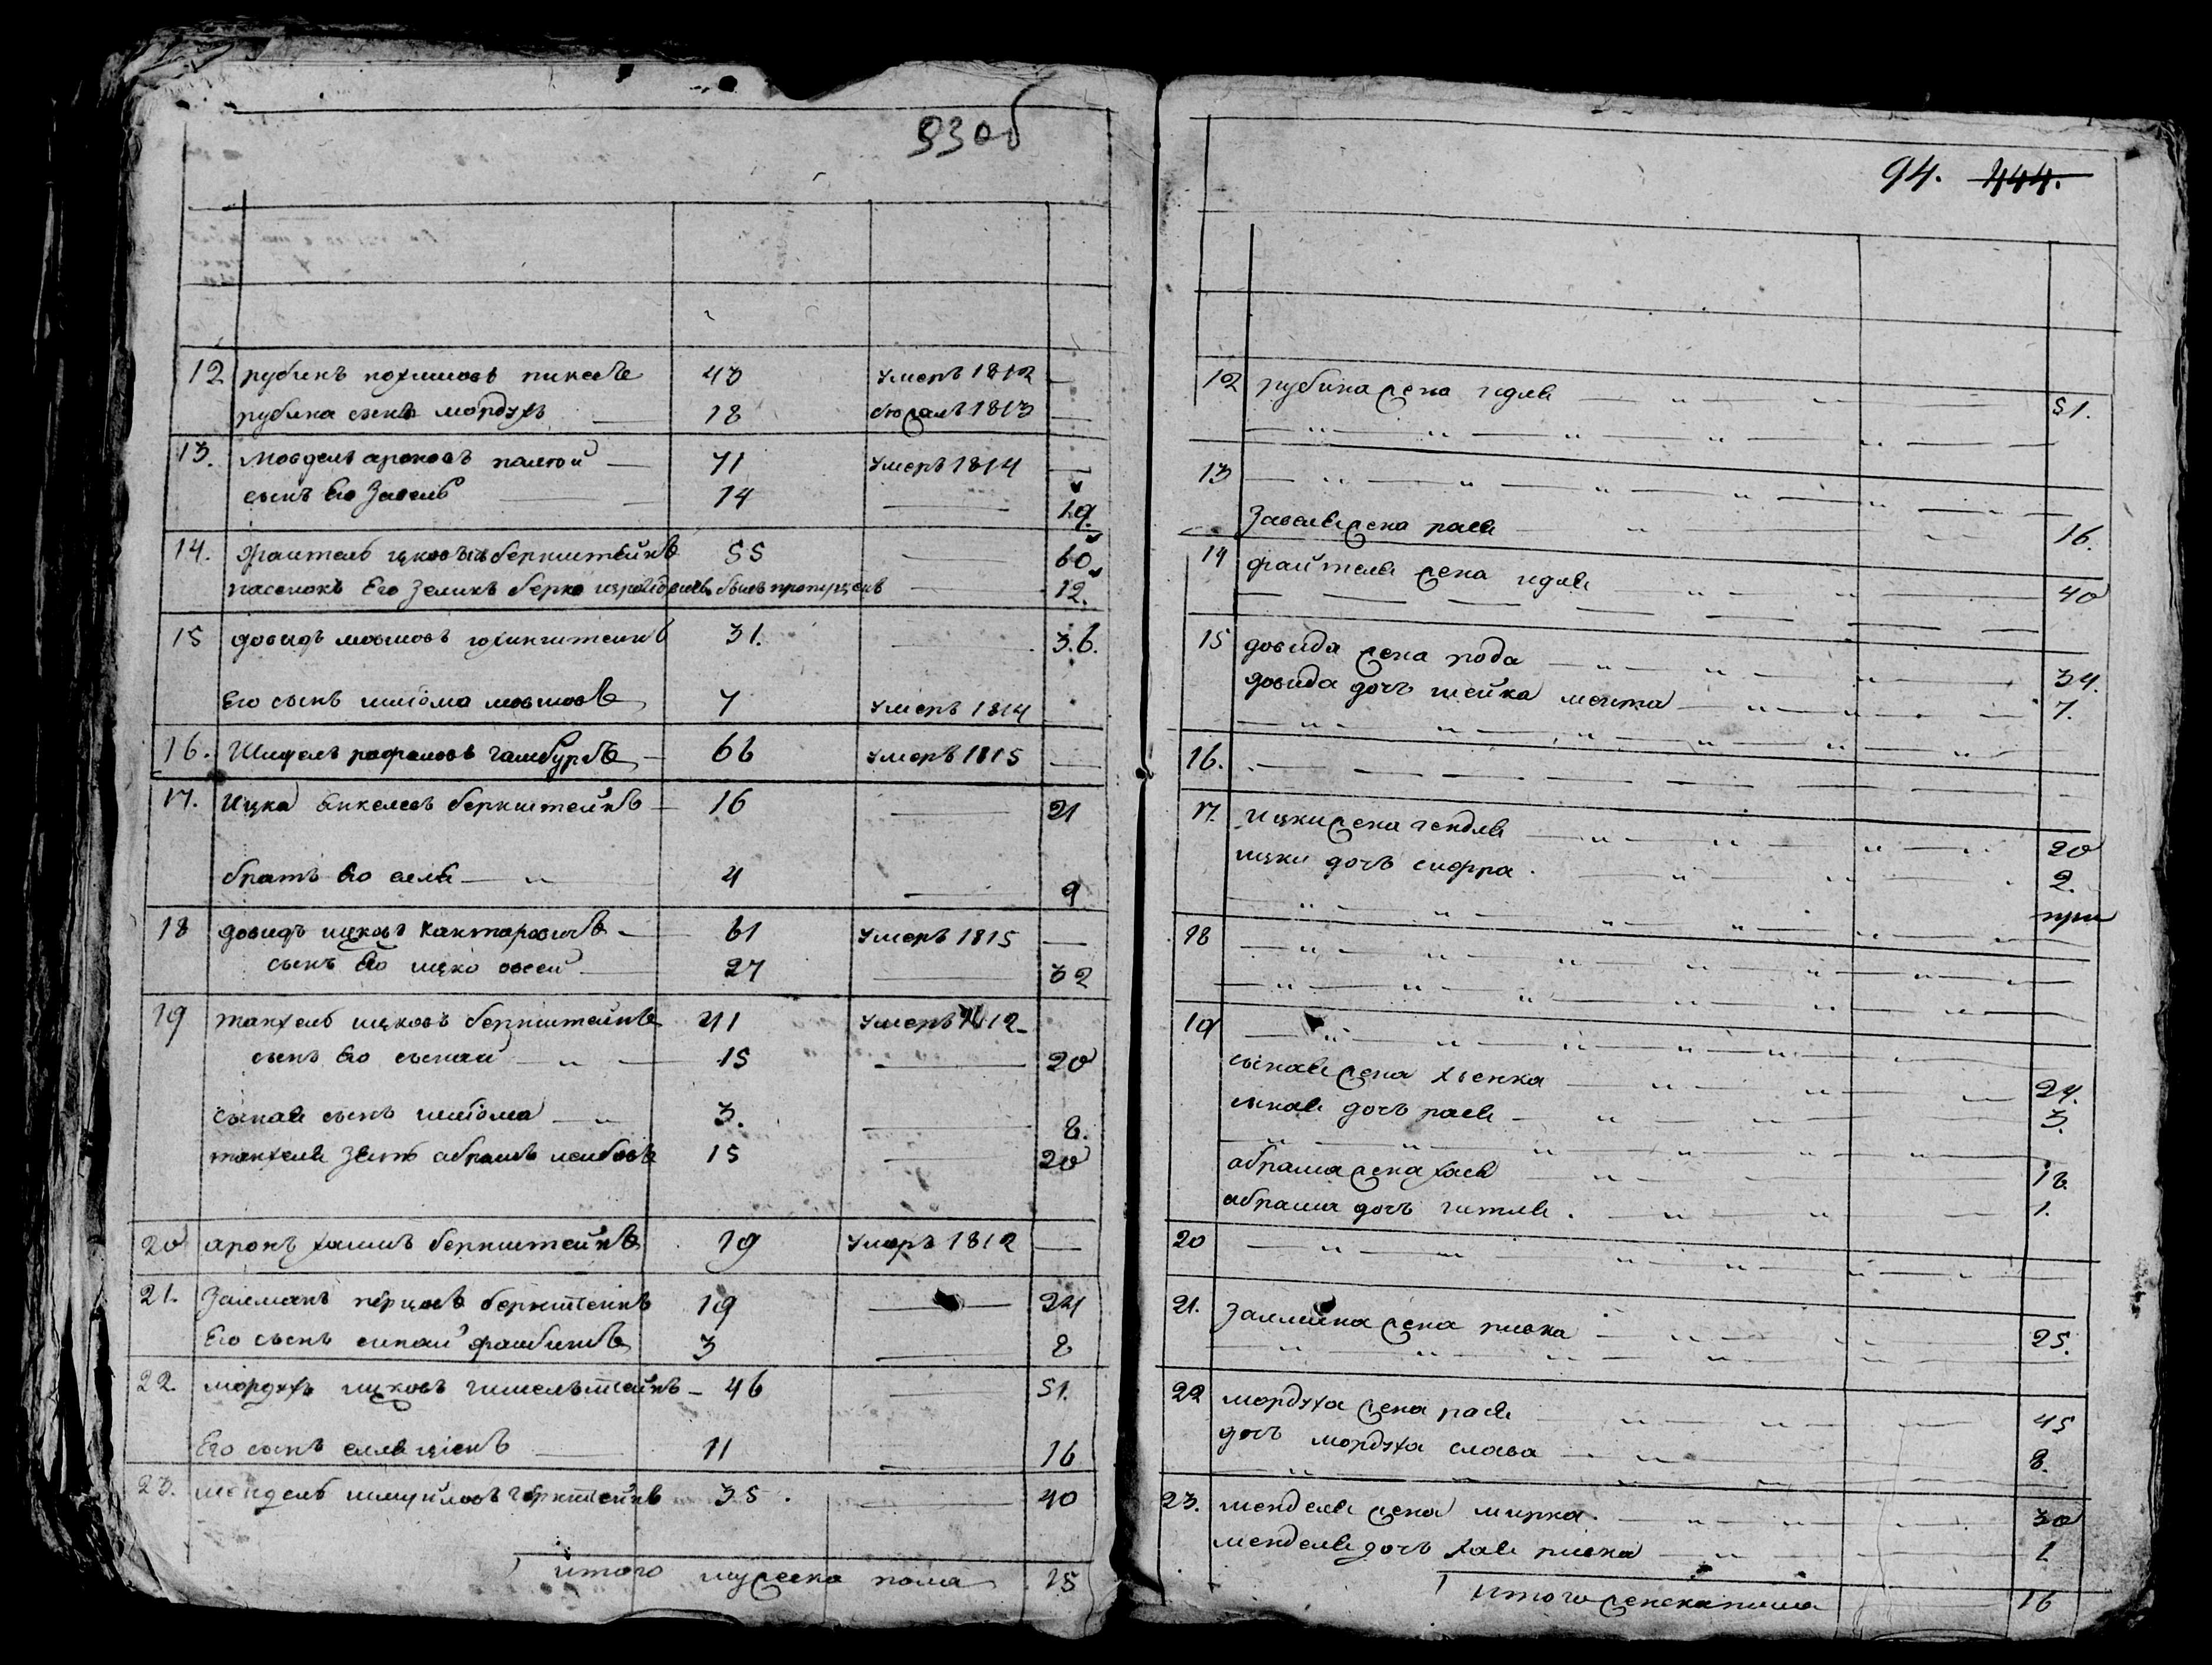 93 об
12 рубинъ нохимовъ пикель 43 умеръ 1812 —
рубина сынъ мордухъ — 18 бежалъ 1813 —
13. Мовдель ароновъ палгой — 71 умеръ 1814 —
сынъ его Завель — 14 — 19.
14. Фаитель ицковичъ бернштейнъ 55 — 60
пасынокъ Его Зеликъ берко былъ пропущенъ — 12.
15 довидъ мовшовъ 31. — 36.
Его сынъ шлiома мовшовъ 7 умеръ 1814
16. рафаиловъ гамбургъ — 66 умеръ 1815 —
17. Ицка Янкелевъ бернштейнъ — 16 — 21
братъ Его еля — „ — 4 — 9
18 довидъ ицковъ кантаровичъ — 61 умеръ 1815 —
сынъ Его ицко овсей — 27 — 32
19 танхель ицковъ бернштейнъ 41 умеръ 1812 —
сынъ Его сынай — „ — 15 — 20
сыная сынъ шлiома — „ 3. — 8.
танхеля зять абрамъ лейбовъ 15 — 20
20 аронъ хаимъ бернштейнъ 19 умеръ 1812 —
21. Залманъ перцовъ бернштейнъ 19 — 24
Его сынъ синай 3 — 8
22. мордухъ ицковъ — 46 — 51.
Его сынъ 11 — 16
23. мендель шмуйловъ 35. — 40
итого мужеска пола 15
94. 444.
12 рубина жена идля — „ — „ — 51.
— „ — „ — „ — „ — „ —
13 — „ — „ — „ — „ — „ —
Завеля жена рася — „ — „ 16.
14 файтеля жена идля — „ — „ — 40
— — — — — —
15 довида жена рода — „ — „ — „ — 34.
довида дочь шейка мента — „ — „ — 7.
— „ — „ — „ — „ — „ — „
16. — — — — — —
17. ицки жена гендля — „ — „ — „ — 20
ицки дочь сифра. — „ — „ — 2.
— „ — „ — „ — „ — „ —
18 — „ — „ — „ — „ — „ —
— „ — „ — „ — „ — „ —
19 — „ — „ — „ — „ — „ —
сыная жена хьенка — „ — „ — 24.
сыная дочь рася — „ — „ — 3.
— „ — „ — „ — „ — „ —
абрама жена хася — „ — „ — 18.
абрама дочь гитля. — „ — „ — 1.
20 — „ — „ — „ — „ — „ —
21. Залмана жена ривка — „ — „ — 25.
— „ — „ — „ — „ — „ —
22 мордуха жена рася — „ — „ — 45
дочь мордуха слава — „ — „ — 8.
— „ — „ — „ — „ — „ —
23. менделя жена мирка. — „ — „ — 30
менделя дочь хая ривка — „ — 1
итого женска пола 16